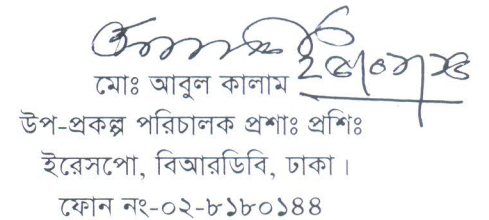 মোঃ আবুল কালাম
উপ-প্রকল্প পরিচালক প্রশাঃ প্রশিঃ
ইরেসপো, বিআরডিবি, ঢাকা ।
ফোন নং-০২-৮১৮০১৪৪